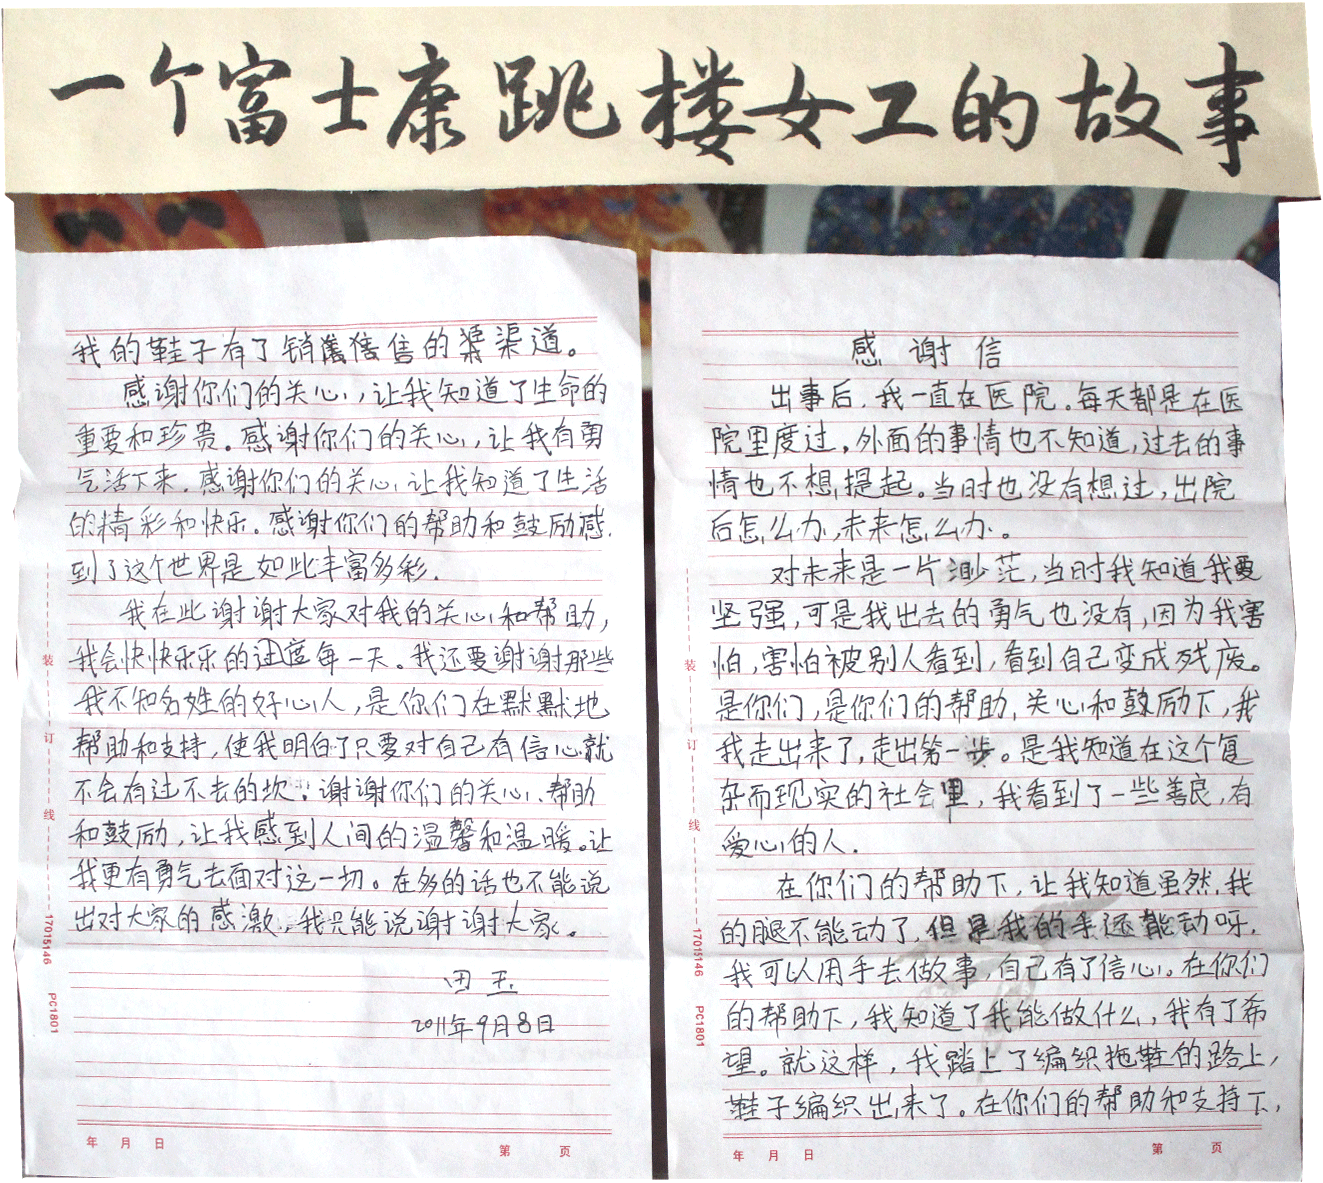 一个富士康跳楼女工的故事
感谢信
出事后，我一直在医院。每天都是在医
院里度过。外面的事情也不知道，过去的事
情也不想提起。当时也没有想过，出院
后怎么办，未来怎么办。
对未来是一片渺茫，当时我知道我要
坚强，可是我出去的勇气也没有，因为我害
怕，害怕被别人看到，看到自己变成残废。
是你们，是你们的帮助，关心和鼓励下，我
我走出来了，走出第一步。是我知道在这个复
杂而现实的社会里，我看到了一些善良，有
爱心的人．
在你们的帮助下，让我知道虽然，我
的腿不能动了，但是我的手还能动呀，
我可以用手去做故事，自己有了信心。在你们
的帮助下，我知道了我能做什么，我有了希
望。就这样，我踏上了编织拖鞋的路上，
鞋子编织出来了。在你们的帮助和支持下，
年 月 日 第 页
装 订 线 17015146 PC1801
我的鞋子有了销售的渠道。
感谢你们的关心，让我知道了生命的
重要和珍贵。感谢你们的关心，让我有勇
气活下来．感谢你们的关心，让我知道了生活
的精彩和快乐．感谢你们的帮助和鼓励感．
到了这个世界是如此丰富多彩．
我在此谢谢大家对我的关心和帮助，
我会快快乐乐的过度每一天。我还要谢谢那些
我不知名姓的好心人，是你们在默默地
帮助和支持，使我明白了只要对自己有信心就
不会有过不去的坎；谢谢你们的关心、帮助
和鼓励，让我感到人间的温馨和温暖。让
我更有勇气去面对这一切。在多的话也不能说
出对大家的感激，我只能说谢谢大家。
田玉
2011年9月8日
年 月 日 第 页
装 订 线 17015146 PC1801